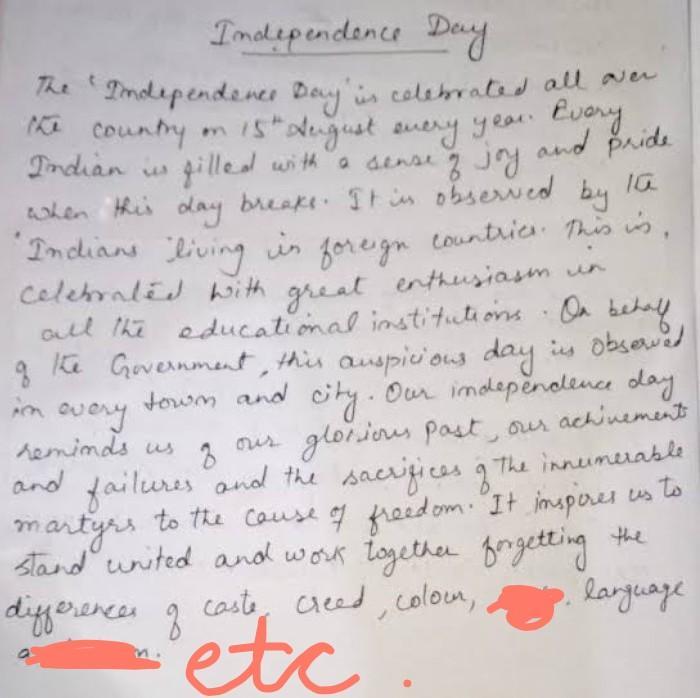 Independence Day
The 'Independence Day' is celebrated all over
the country on 15th August every year. Every
Indian is filled with a sense of joy and pride
when this day breaks. It is observed by the
Indians living in foreign countries. This is
celebrated with great enthusiasm in
all the educational institutions. On behalf
of the Government, this auspicious day is observed
in every town and city. Our independence day
reminds us of our glorious past, our achivements
and failures and the sacrifices of the innumerable
martyrs to the cause of freedom. It inspires us to
stand united and work together forgetting the
differences of caste, creed, colour, language
etc.